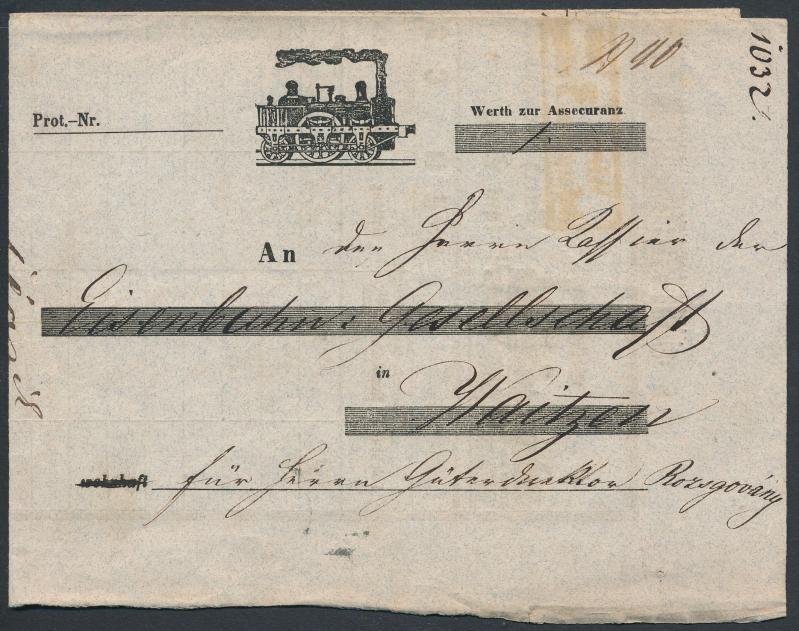 1032.
N 40
Prot.-Nr.
Werth zur Assecuranz
1.
An den Herrn Cassier der
Eisenbahn: Gesellschaft
in
Waitzen
wohnhaft für Herrn Güterdirektor Rozsgovány